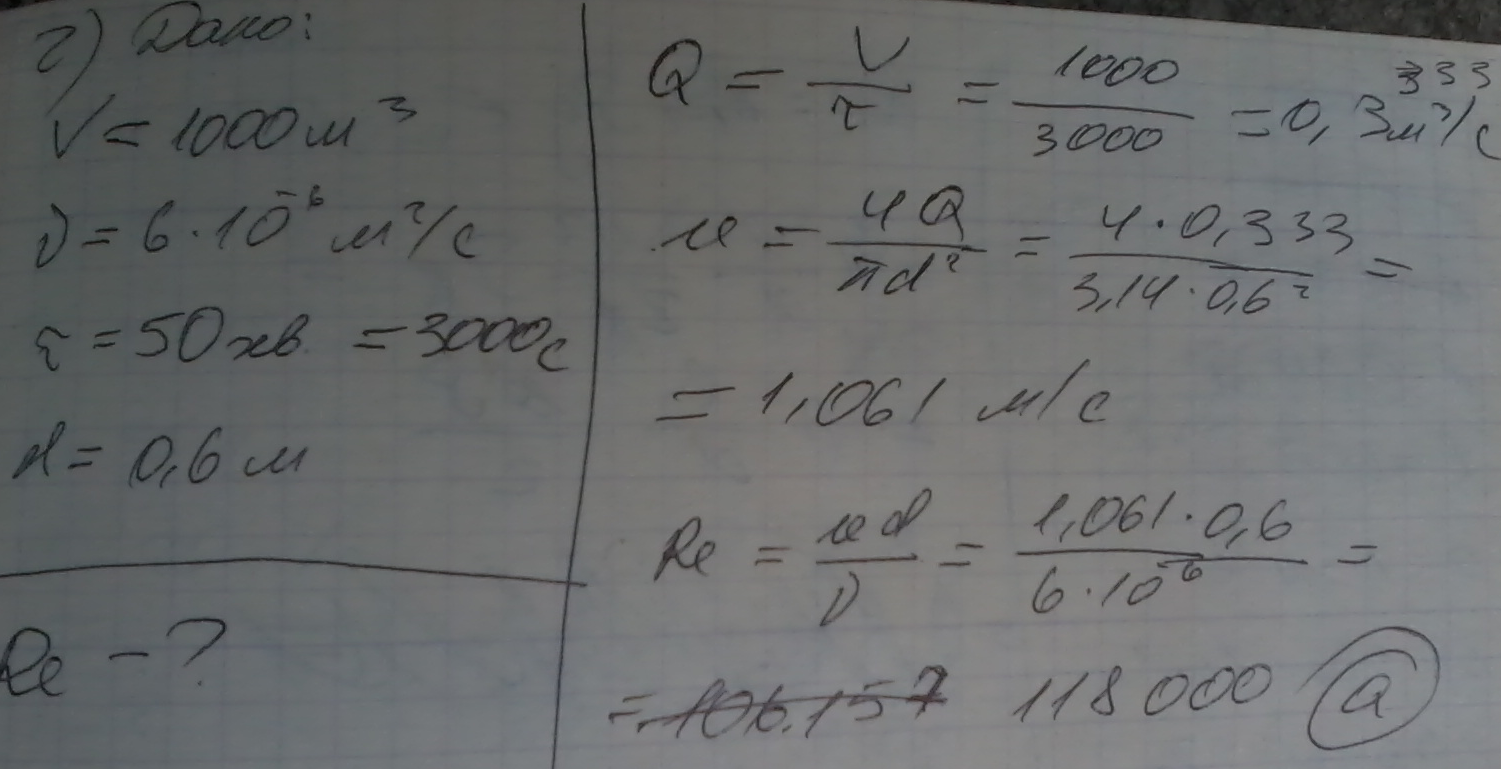 2) Дано:
V = 1000 м³
ν = 6·10⁻⁶ м²/с
τ = 50 хв = 3000 с
d = 0,6 м
Re - ?
Q = V/τ = 1000/3000 = 0,333 м³/с
u = 4Q/πd² = 4·0,333/3,14·0,6² =
= 1,061 м/с
Re = ud/ν = 1,061·0,6/6·10⁻⁶ =
= 106.157 118 000 a